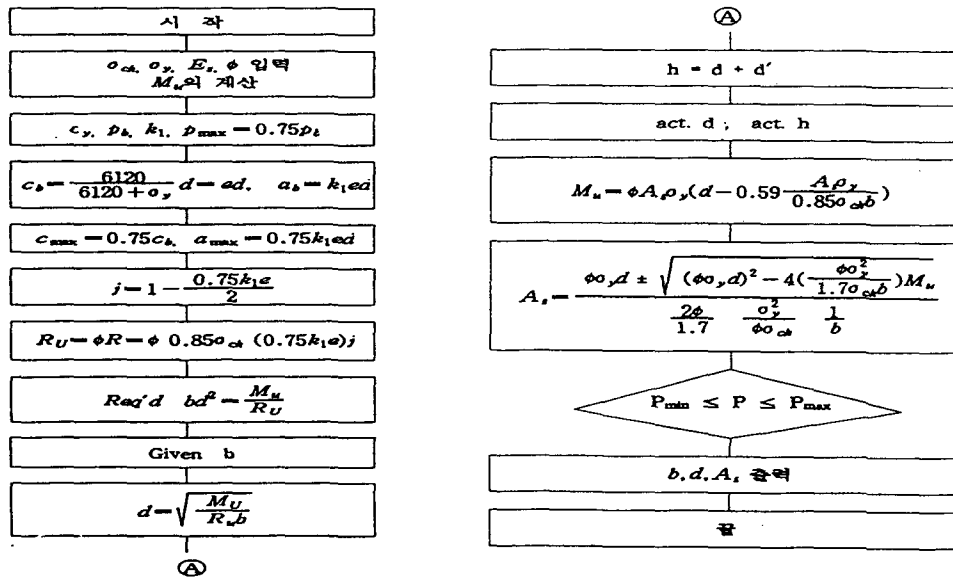 시 작
σck, σy, Es, φ 입력
Mu의 계산
εy, pb, k1, pmax = 0.75pb
cb = 6120 / (6120 + σy) d = ed, ab = k1ed
cmax = 0.75cb, amax = 0.75k1ed
j = 1 − 0.75k1e / 2
RU = φR = φ 0.85σck (0.75k1e)j
Req'd bd² = Mu / RU
Given b
d = √(MU / Rub)
Ⓐ
Ⓐ
h = d + d′
act. d ; act. h
Mu = φAsσy(d − 0.59 Asσy / 0.85σckb)
As = (φσyd ± √((φσyd)² − 4(φσy² / 1.7σckb)Mu)) / (2φ / 1.7 σy² / φσck 1 / b)
Pmin ≤ P ≤ Pmax
b, d, As 출력
끝